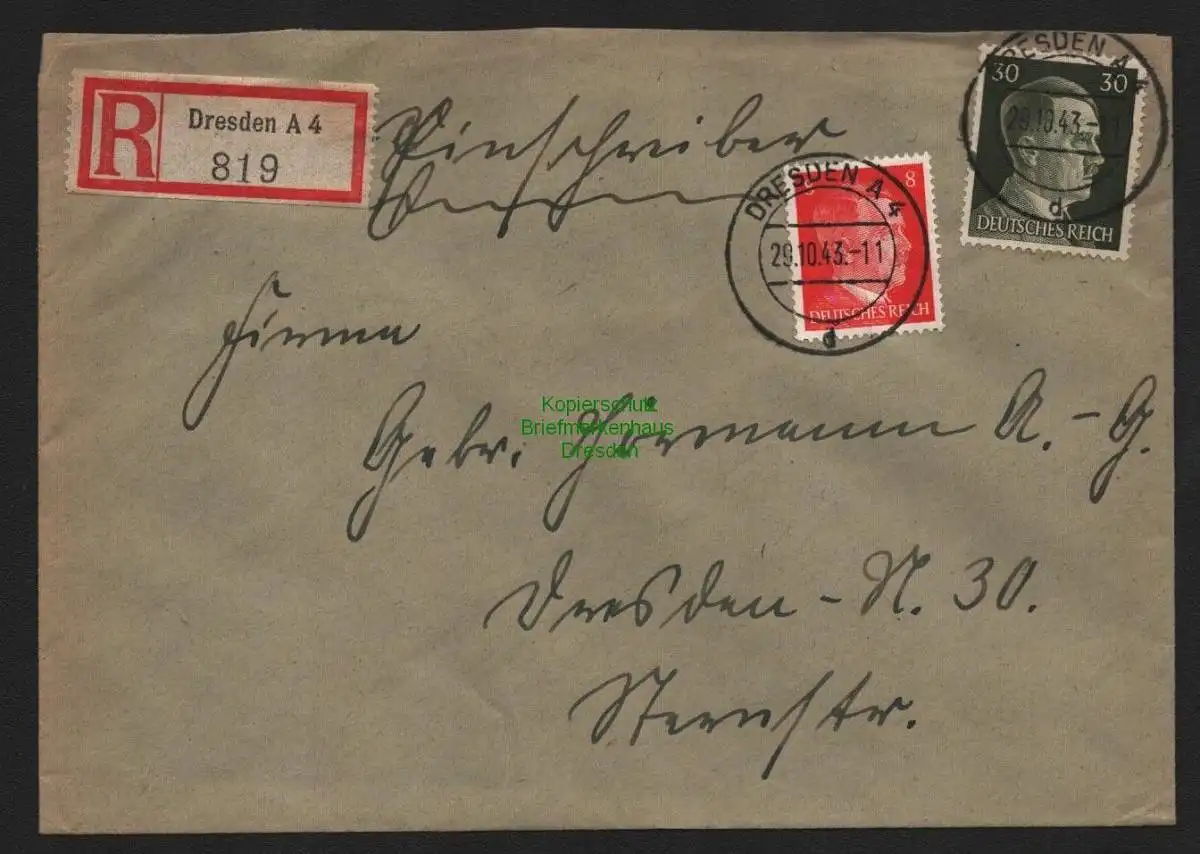 R Dresden A 4
819
Einschreiben
DRESDEN A 4
29.10.43.-11
d
8
DEUTSCHES REICH
DRESDEN A 4
29.10.43.-11
d
30 30
DEUTSCHES REICH
Firma
Gebr. Hörmann A.-G.
Dresden-N. 30.
Sternstr.
Kopierschutz
Briefmarkenhaus
Dresden